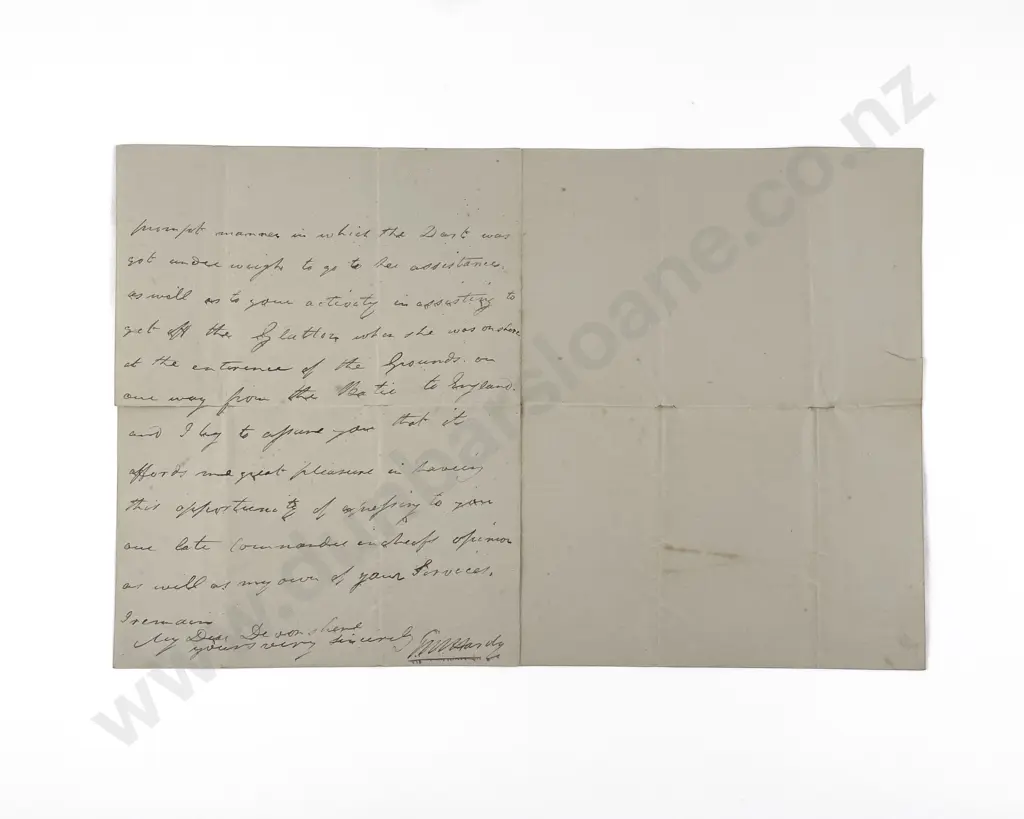 prompt manner in which the Dart was
got under weigh to go to her assistance.
as well as to your activity in assisting to
get off the Glatton when she was on shore
at the enterence of the Grounds. on
our way from the Baltic to England.
and I beg to assure you that it
affords me great pleasure in having
this opportunity of expressing to you
our late Commander in chiefs opinion
as well as my own of your Services.
I remain
My Dear Devonshire
yours very sincerely T M Hardy
www.dunbarsloane.co.nz